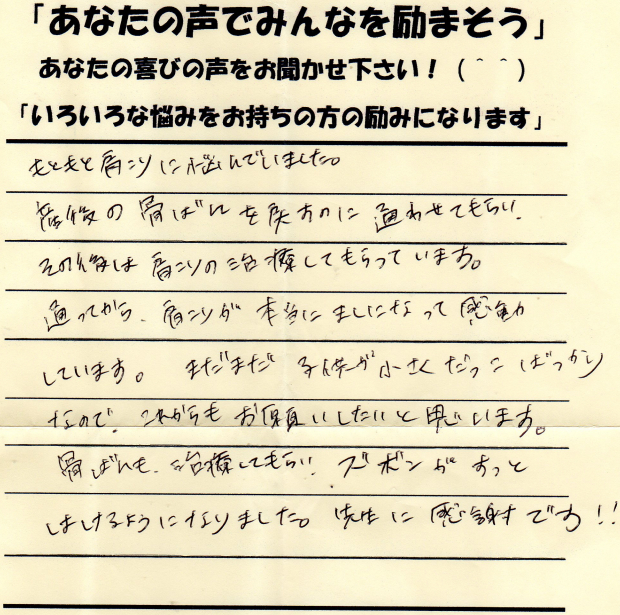 「あなたの声でみんなを励まそう」
あなたの喜びの声をお聞かせ下さい！（＾＾）
「いろいろな悩みをお持ちの方の励みになります」
もともと肩こりに悩んでいました。
産後の骨ばんを戻すのに通わせてもらい、
その後は肩こりの治療してもらっています。
通ってから、肩こりが本当にましになって感動
しています。まだまだ子供が小さくだっこばっかり
なので、これからもお願いしたいと思います。
骨ばんも、治療してもらい、ズボンがすっと
はけるようになりました。先生に感謝です!!